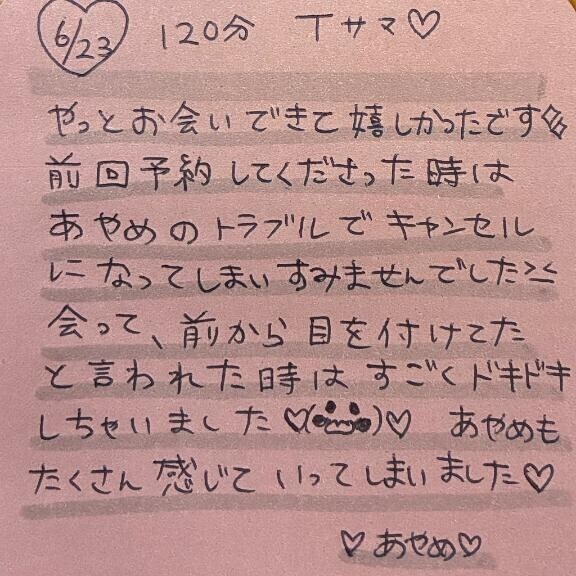 6/23 120分 Tサマ♡
やっとお会いできて嬉しかったです
前回予約してくださった時は
あやめのトラブルでキャンセル
になってしまいすみませんでした><
会って、前から目を付けてた
と言われた時はすごくドキドキ
しちゃいました♡( )♡ あやめも
たくさん感じていってしまいました♡
♡あやめ♡